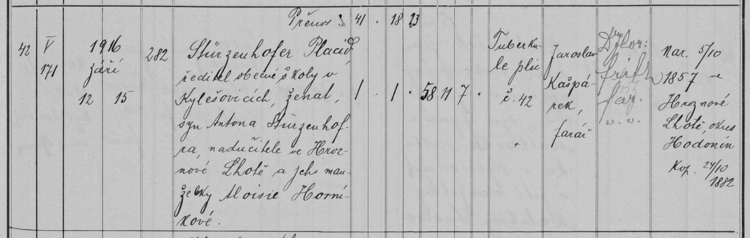 Přenos 41 · 18 23
42 V 171 1916 září 12 15 282
Stürzenhofer Placid,
ředitel obecné školy v
Kylešovicích, ženat,
syn Antona Stürzenhof-
ra, nadučitele ve Hroz-
nové Lhotě a jeho man-
želky Aloisie Horní-
kové.
1 · 1 · 58 11 7 ·
Tuberku-
le plic
č. 42
Jaroslav
Kašpá-
rek,
farář
far.
v. v.
Nar. 5/10
1857 ve
Hroznové
Lhotě, okres
Hodonín
Kop. 24/10
1882